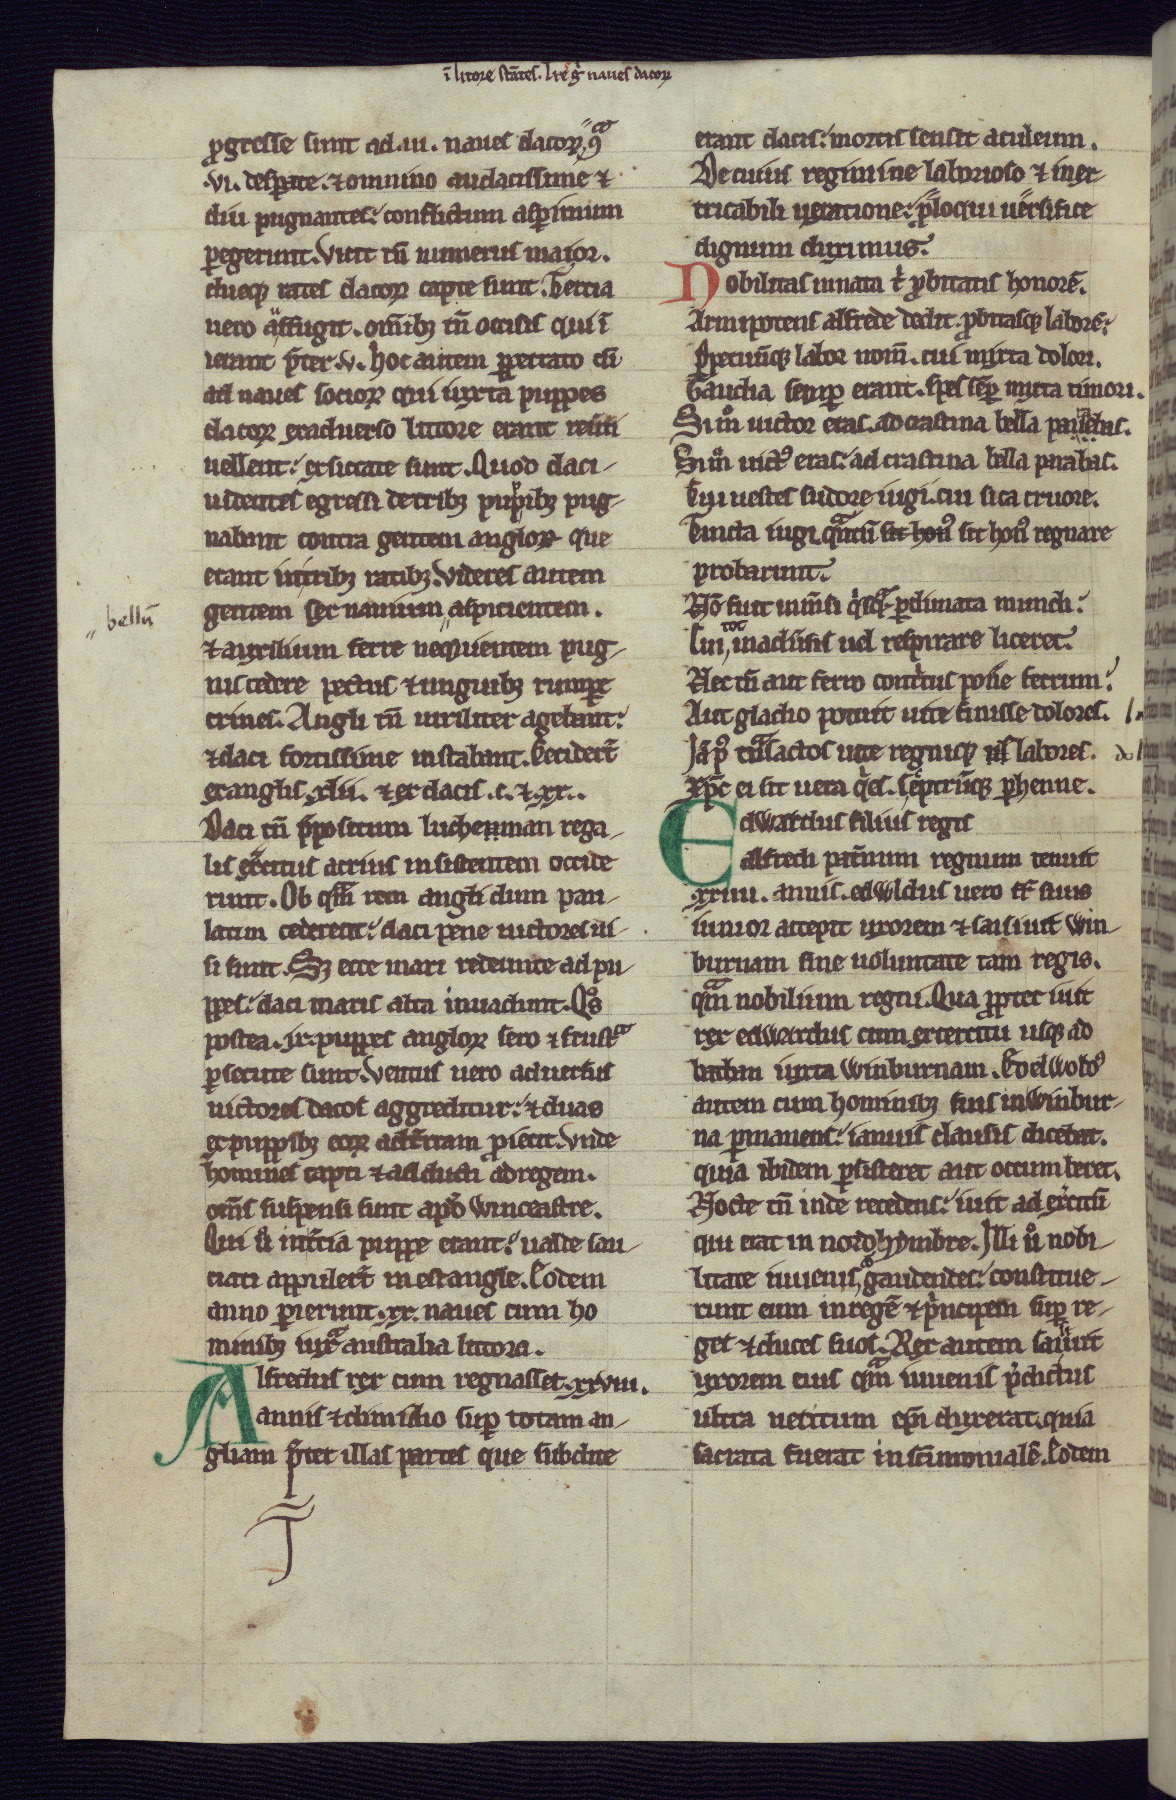 ī litore stātes. l reg̃ naues dacoꝝ
ꝓgresse sunt ad .iii. naues dacoꝝ, ꝯͣ
.vi. desꝑate. ⁊ omnino audacissime ⁊
diu pugnantes: conflictum asꝑimum
ꝑegerunt. Vicit tñ numerus maior.
dueqꝫ rates dacoꝝ capte sunt. Tercia
uero aͣffugit. om̄ibꝫ tñ occisis qui ī
ierant p̄ter .v. hoc autem ꝑpetrato cū
ad naues socioꝝ qui iuxta puppes
dacoꝝ exaduerso littore erant reu̾ti
uellent: exsiccate sunt. Quod daci
uidentes egressi de tribꝫ pupibꝫ pug-
nabant contra gentem angloꝝ que
erant in tribꝫ ratibꝫ. Videres autem
gentem sex nauium aspicientem.
bellū
⁊ auxilium ferre nequientem pug-
nis cedere pectus ⁊ unguibꝫ rumpe
crines. Angli tñ uiriliter agebant:
⁊ daci fortissime instabant. Cecider̄t
ex anglis .xlii. ⁊ ex dacis .c. ⁊ .xx..
Daci tñ p̄positum lucheman rega-
lis ex̾citus acrius insistentem occide
runt. Ob quā rem angli dum pau-
latim cederent: daci pene uictores ui-
si sunt. Sꝫ ecce mari redeunte ad pu
ppes: daci maris alta inuadunt. Qͦs
postea .ix. puppes angloꝝ sero ⁊ frustͣ
ꝑsecute sunt. Ventus uero aduersus
uictores dacos aggreditur: ⁊ duas
ex puppibꝫ eoꝝ ad t̾ram ꝓiecit. Vnde
homines capti ⁊ adducti ad regem.
om̄s suspensi sunt apᵈ Winceastre.
Qui u̾ in t̾cia puppe erant: ualde sau
ciati appuler̄t in estangle. Eodem
anno ꝑierunt .xx. naues cum ho
minibꝫ iuxͣ australia littora.
Alfredus rex cum regnasset .xxviii.
annis ⁊ dimidio suꝑ totam an-
gliam p̄ter illas partes que subdite
erant dacis: mortis sensit aculeum.
De cuius regimine laborioso ⁊ inex-
tricabili uexatione: ꝓloqui uersifice
dignum duximus.
Nobilitas innata t̾ ꝓbitatis honorē.
Armipotens alfrede dedit. ꝓbitasqꝫ laborē:
Ꝑpetuūqꝫ labor nom̄. cui mixta dolori.
Gaudia semꝑ erant. spes sēꝑ mixta timori.
Si m̊ uictor eras. ad crastina bella pauebas.
Si m̊ uictꝰ eras: ad crastina bella parabas.
Cui uestes sudore iugi. cui sica cruore.
Tincta iugi. quͣtū sit honꝰ sit honꝰ regnare
probarunt.
Nō fuit inm̄si qͥsqͣ ꝑ climata mundi:
Cui, tot in adu̾sis uel respirare liceret.
Nec tñ aut ferro contͥtus pon̾e ferrum:
Aut gladio potuit uite finisse dolores.
Jā pꝰ tͣnsactos uite regniqꝫ labores.
Xp̄c ei sit uera qͥes. sceptrūqꝫ ꝑhenne.
Edwardus filius regis
alfredi pat̾num regnum tenuit
.xxiiii. annis. edwldus uero fr̄ suus
iunior accepit uxorem ⁊ saisiuit Win-
burnam sine uoluntate tam regis.
quͣm nobilium regni. Qua ꝓpter iuit
rex edwardus cum exercitu usqꝫ ad
badan iuxta Winburnam. Edelwoldꝰ
autem cum hominibꝫ suis in Winbur-
na ꝑmanens: ianuis clausis dicebat.
quia ibidem ꝑsisteret aut occumberet.
Nocte tñ inde recedens: iuit ad ex̾citū
qui erat in nordhymbre. Illi u̾o nobi-
litate iuuenis, gaudentes: constitue-
runt eum in regē ⁊ pͥncipem suꝑ re-
ges ⁊ duces suos. Rex autem saisiuit
uxorem eius quͣm iuuenis p̄dictus
ultra uetitum ep̄i duxerat. quia
sacrata fuerat in sc̄imonialē. Eodem